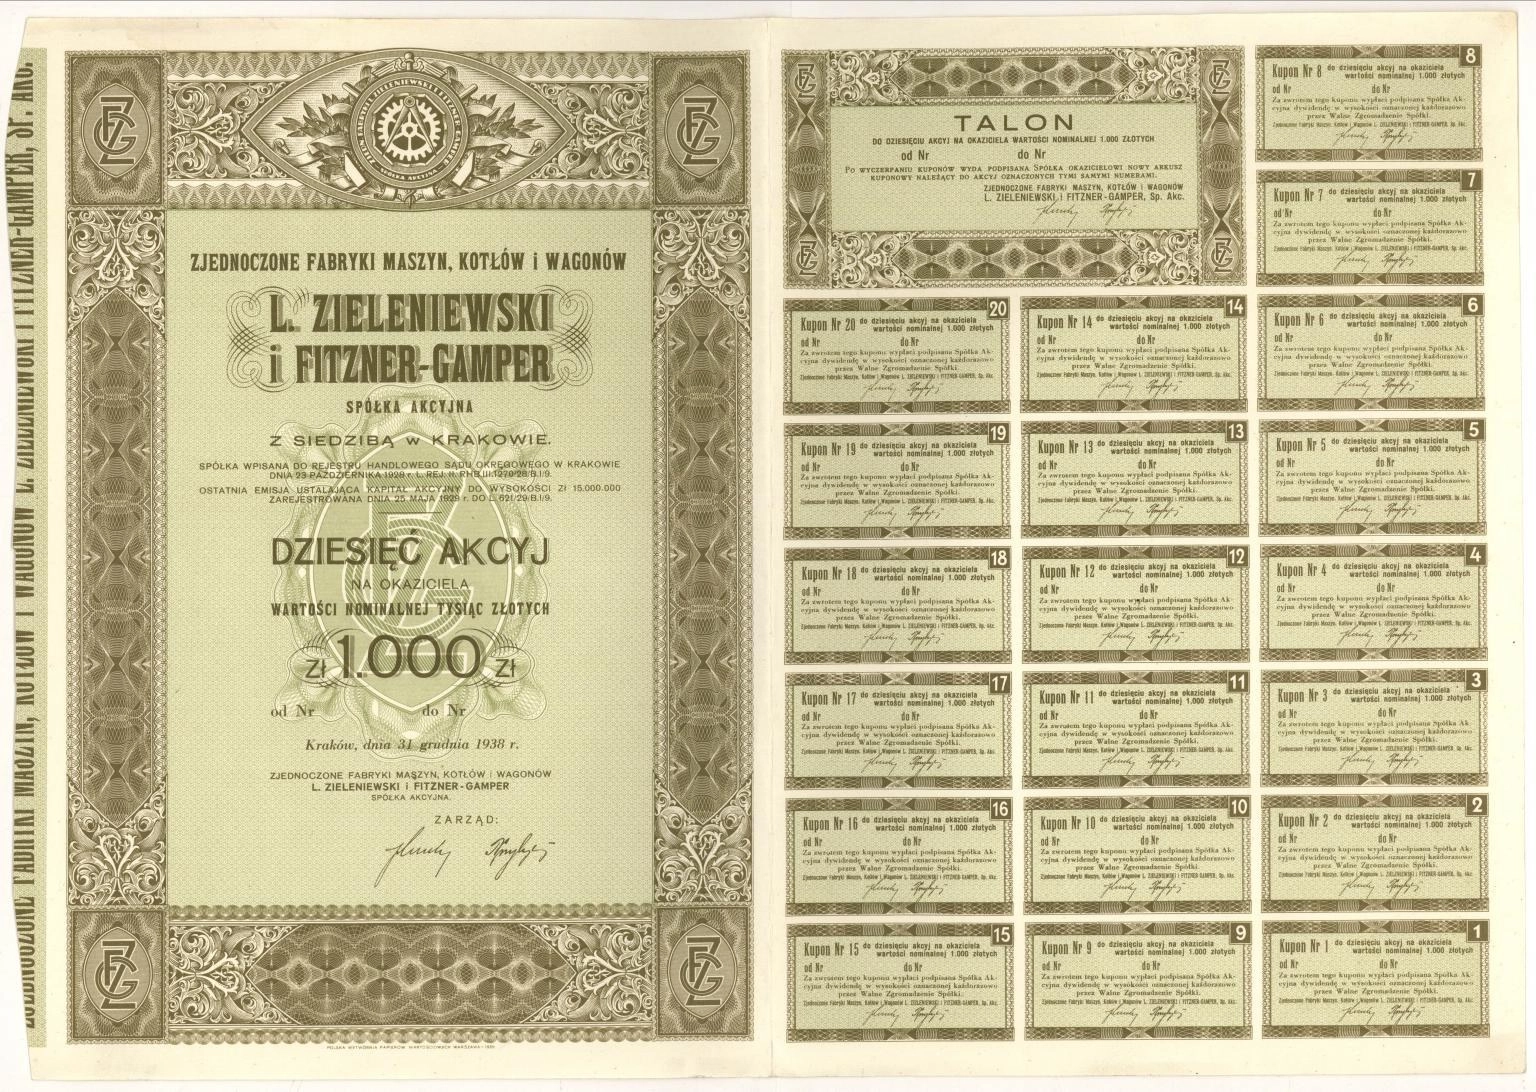 ZJEDNOCZONE FABRYKI MASZYN, KOTŁÓW I WAGONÓW L. ZIELENIEWSKI I FITZNER-GAMPER, SP. AKC.
ZJEDNOCZONE FABRYKI MASZYN, KOTŁÓW i WAGONÓW
L. ZIELENIEWSKI
i FITZNER-GAMPER
SPÓŁKA AKCYJNA
Z SIEDZIBĄ w KRAKOWIE.
SPÓŁKA WPISANA DO REJESTRU HANDLOWEGO SĄDU OKRĘGOWEGO W KRAKOWIE
DNIA 23 PAŹDZIERNIKA 1928 r.
OSTATNIA EMISJA USTALAJĄCA KAPITAŁ AKCYJNY DO WYSOKOŚCI ZŁ 15.000.000
ZAREJESTROWANA DNIA 25 MAJA 1929 r. DO L. 621/29/B.I/9.
DZIESIĘĆ AKCYJ
NA OKAZICIELA
WARTOŚCI NOMINALNEJ TYSIĄC ZŁOTYCH
Zł 1.000 Zł
od Nr do Nr
Kraków, dnia 31 grudnia 1938 r.
ZJEDNOCZONE FABRYKI MASZYN, KOTŁÓW i WAGONÓW
L. ZIELENIEWSKI i FITZNER-GAMPER
SPÓŁKA AKCYJNA.
ZARZĄD:
POLSKA WYTWÓRNIA PAPIERÓW WARTOŚCIOWYCH WARSZAWA
TALON
DO DZIESIĘCIU AKCYJ NA OKAZICIELA WARTOŚCI NOMINALNEJ 1.000 ZŁOTYCH
od Nr do Nr
PO WYCZERPANIU KUPONÓW WYDA PODPISANA SPÓŁKA OKAZICIELOWI NOWY ARKUSZ
KUPONOWY NALEŻĄCY DO AKCYJ OZNACZONYCH TYMI SAMYMI NUMERAMI.
ZJEDNOCZONE FABRYKI MASZYN, KOTŁÓW i WAGONÓW
L. ZIELENIEWSKI i FITZNER-GAMPER, Sp. Akc.
8
Kupon Nr 8 do dziesięciu akcyj na okaziciela
wartości nominalnej 1.000 złotych
od Nr do Nr
Za zwrotem tego kuponu wypłaci podpisana Spółka Ak-
cyjna dywidendę w wysokości oznaczonej każdorazowo
przez Walne Zgromadzenie Spółki.
Zjednoczone Fabryki Maszyn, Kotłów i Wagonów L. ZIELENIEWSKI i FITZNER-GAMPER, Sp. Akc.
7
Kupon Nr 7 do dziesięciu akcyj na okaziciela
wartości nominalnej 1.000 złotych
od Nr do Nr
Za zwrotem tego kuponu wypłaci podpisana Spółka Ak-
cyjna dywidendę w wysokości oznaczonej każdorazowo
przez Walne Zgromadzenie Spółki.
Zjednoczone Fabryki Maszyn, Kotłów i Wagonów L. ZIELENIEWSKI i FITZNER-GAMPER, Sp. Akc.
20
Kupon Nr 20 do dziesięciu akcyj na okaziciela
wartości nominalnej 1.000 złotych
od Nr do Nr
Za zwrotem tego kuponu wypłaci podpisana Spółka Ak-
cyjna dywidendę w wysokości oznaczonej każdorazowo
przez Walne Zgromadzenie Spółki.
Zjednoczone Fabryki Maszyn, Kotłów i Wagonów L. ZIELENIEWSKI i FITZNER-GAMPER, Sp. Akc.
14
Kupon Nr 14 do dziesięciu akcyj na okaziciela
wartości nominalnej 1.000 złotych
od Nr do Nr
Za zwrotem tego kuponu wypłaci podpisana Spółka Ak-
cyjna dywidendę w wysokości oznaczonej każdorazowo
przez Walne Zgromadzenie Spółki.
Zjednoczone Fabryki Maszyn, Kotłów i Wagonów L. ZIELENIEWSKI i FITZNER-GAMPER, Sp. Akc.
6
Kupon Nr 6 do dziesięciu akcyj na okaziciela
wartości nominalnej 1.000 złotych
od Nr do Nr
Za zwrotem tego kuponu wypłaci podpisana Spółka Ak-
cyjna dywidendę w wysokości oznaczonej każdorazowo
przez Walne Zgromadzenie Spółki.
Zjednoczone Fabryki Maszyn, Kotłów i Wagonów L. ZIELENIEWSKI i FITZNER-GAMPER, Sp. Akc.
19
Kupon Nr 19 do dziesięciu akcyj na okaziciela
wartości nominalnej 1.000 złotych
od Nr do Nr
Za zwrotem tego kuponu wypłaci podpisana Spółka Ak-
cyjna dywidendę w wysokości oznaczonej każdorazowo
przez Walne Zgromadzenie Spółki.
Zjednoczone Fabryki Maszyn, Kotłów i Wagonów L. ZIELENIEWSKI i FITZNER-GAMPER, Sp. Akc.
13
Kupon Nr 13 do dziesięciu akcyj na okaziciela
wartości nominalnej 1.000 złotych
od Nr do Nr
Za zwrotem tego kuponu wypłaci podpisana Spółka Ak-
cyjna dywidendę w wysokości oznaczonej każdorazowo
przez Walne Zgromadzenie Spółki.
Zjednoczone Fabryki Maszyn, Kotłów i Wagonów L. ZIELENIEWSKI i FITZNER-GAMPER, Sp. Akc.
5
Kupon Nr 5 do dziesięciu akcyj na okaziciela
wartości nominalnej 1.000 złotych
od Nr do Nr
Za zwrotem tego kuponu wypłaci podpisana Spółka Ak-
cyjna dywidendę w wysokości oznaczonej każdorazowo
przez Walne Zgromadzenie Spółki.
Zjednoczone Fabryki Maszyn, Kotłów i Wagonów L. ZIELENIEWSKI i FITZNER-GAMPER, Sp. Akc.
18
Kupon Nr 18 do dziesięciu akcyj na okaziciela
wartości nominalnej 1.000 złotych
od Nr do Nr
Za zwrotem tego kuponu wypłaci podpisana Spółka Ak-
cyjna dywidendę w wysokości oznaczonej każdorazowo
przez Walne Zgromadzenie Spółki.
Zjednoczone Fabryki Maszyn, Kotłów i Wagonów L. ZIELENIEWSKI i FITZNER-GAMPER, Sp. Akc.
12
Kupon Nr 12 do dziesięciu akcyj na okaziciela
wartości nominalnej 1.000 złotych
od Nr do Nr
Za zwrotem tego kuponu wypłaci podpisana Spółka Ak-
cyjna dywidendę w wysokości oznaczonej każdorazowo
przez Walne Zgromadzenie Spółki.
Zjednoczone Fabryki Maszyn, Kotłów i Wagonów L. ZIELENIEWSKI i FITZNER-GAMPER, Sp. Akc.
4
Kupon Nr 4 do dziesięciu akcyj na okaziciela
wartości nominalnej 1.000 złotych
od Nr do Nr
Za zwrotem tego kuponu wypłaci podpisana Spółka Ak-
cyjna dywidendę w wysokości oznaczonej każdorazowo
przez Walne Zgromadzenie Spółki.
Zjednoczone Fabryki Maszyn, Kotłów i Wagonów L. ZIELENIEWSKI i FITZNER-GAMPER, Sp. Akc.
17
Kupon Nr 17 do dziesięciu akcyj na okaziciela
wartości nominalnej 1.000 złotych
od Nr do Nr
Za zwrotem tego kuponu wypłaci podpisana Spółka Ak-
cyjna dywidendę w wysokości oznaczonej każdorazowo
przez Walne Zgromadzenie Spółki.
Zjednoczone Fabryki Maszyn, Kotłów i Wagonów L. ZIELENIEWSKI i FITZNER-GAMPER, Sp. Akc.
11
Kupon Nr 11 do dziesięciu akcyj na okaziciela
wartości nominalnej 1.000 złotych
od Nr do Nr
Za zwrotem tego kuponu wypłaci podpisana Spółka Ak-
cyjna dywidendę w wysokości oznaczonej każdorazowo
przez Walne Zgromadzenie Spółki.
Zjednoczone Fabryki Maszyn, Kotłów i Wagonów L. ZIELENIEWSKI i FITZNER-GAMPER, Sp. Akc.
3
Kupon Nr 3 do dziesięciu akcyj na okaziciela
wartości nominalnej 1.000 złotych
od Nr do Nr
Za zwrotem tego kuponu wypłaci podpisana Spółka Ak-
cyjna dywidendę w wysokości oznaczonej każdorazowo
przez Walne Zgromadzenie Spółki.
Zjednoczone Fabryki Maszyn, Kotłów i Wagonów L. ZIELENIEWSKI i FITZNER-GAMPER, Sp. Akc.
16
Kupon Nr 16 do dziesięciu akcyj na okaziciela
wartości nominalnej 1.000 złotych
od Nr do Nr
Za zwrotem tego kuponu wypłaci podpisana Spółka Ak-
cyjna dywidendę w wysokości oznaczonej każdorazowo
przez Walne Zgromadzenie Spółki.
Zjednoczone Fabryki Maszyn, Kotłów i Wagonów L. ZIELENIEWSKI i FITZNER-GAMPER, Sp. Akc.
10
Kupon Nr 10 do dziesięciu akcyj na okaziciela
wartości nominalnej 1.000 złotych
od Nr do Nr
Za zwrotem tego kuponu wypłaci podpisana Spółka Ak-
cyjna dywidendę w wysokości oznaczonej każdorazowo
przez Walne Zgromadzenie Spółki.
Zjednoczone Fabryki Maszyn, Kotłów i Wagonów L. ZIELENIEWSKI i FITZNER-GAMPER, Sp. Akc.
2
Kupon Nr 2 do dziesięciu akcyj na okaziciela
wartości nominalnej 1.000 złotych
od Nr do Nr
Za zwrotem tego kuponu wypłaci podpisana Spółka Ak-
cyjna dywidendę w wysokości oznaczonej każdorazowo
przez Walne Zgromadzenie Spółki.
Zjednoczone Fabryki Maszyn, Kotłów i Wagonów L. ZIELENIEWSKI i FITZNER-GAMPER, Sp. Akc.
15
Kupon Nr 15 do dziesięciu akcyj na okaziciela
wartości nominalnej 1.000 złotych
od Nr do Nr
Za zwrotem tego kuponu wypłaci podpisana Spółka Ak-
cyjna dywidendę w wysokości oznaczonej każdorazowo
przez Walne Zgromadzenie Spółki.
Zjednoczone Fabryki Maszyn, Kotłów i Wagonów L. ZIELENIEWSKI i FITZNER-GAMPER, Sp. Akc.
9
Kupon Nr 9 do dziesięciu akcyj na okaziciela
wartości nominalnej 1.000 złotych
od Nr do Nr
Za zwrotem tego kuponu wypłaci podpisana Spółka Ak-
cyjna dywidendę w wysokości oznaczonej każdorazowo
przez Walne Zgromadzenie Spółki.
Zjednoczone Fabryki Maszyn, Kotłów i Wagonów L. ZIELENIEWSKI i FITZNER-GAMPER, Sp. Akc.
1
Kupon Nr 1 do dziesięciu akcyj na okaziciela
wartości nominalnej 1.000 złotych
od Nr do Nr
Za zwrotem tego kuponu wypłaci podpisana Spółka Ak-
cyjna dywidendę w wysokości oznaczonej każdorazowo
przez Walne Zgromadzenie Spółki.
Zjednoczone Fabryki Maszyn, Kotłów i Wagonów L. ZIELENIEWSKI i FITZNER-GAMPER, Sp. Akc.